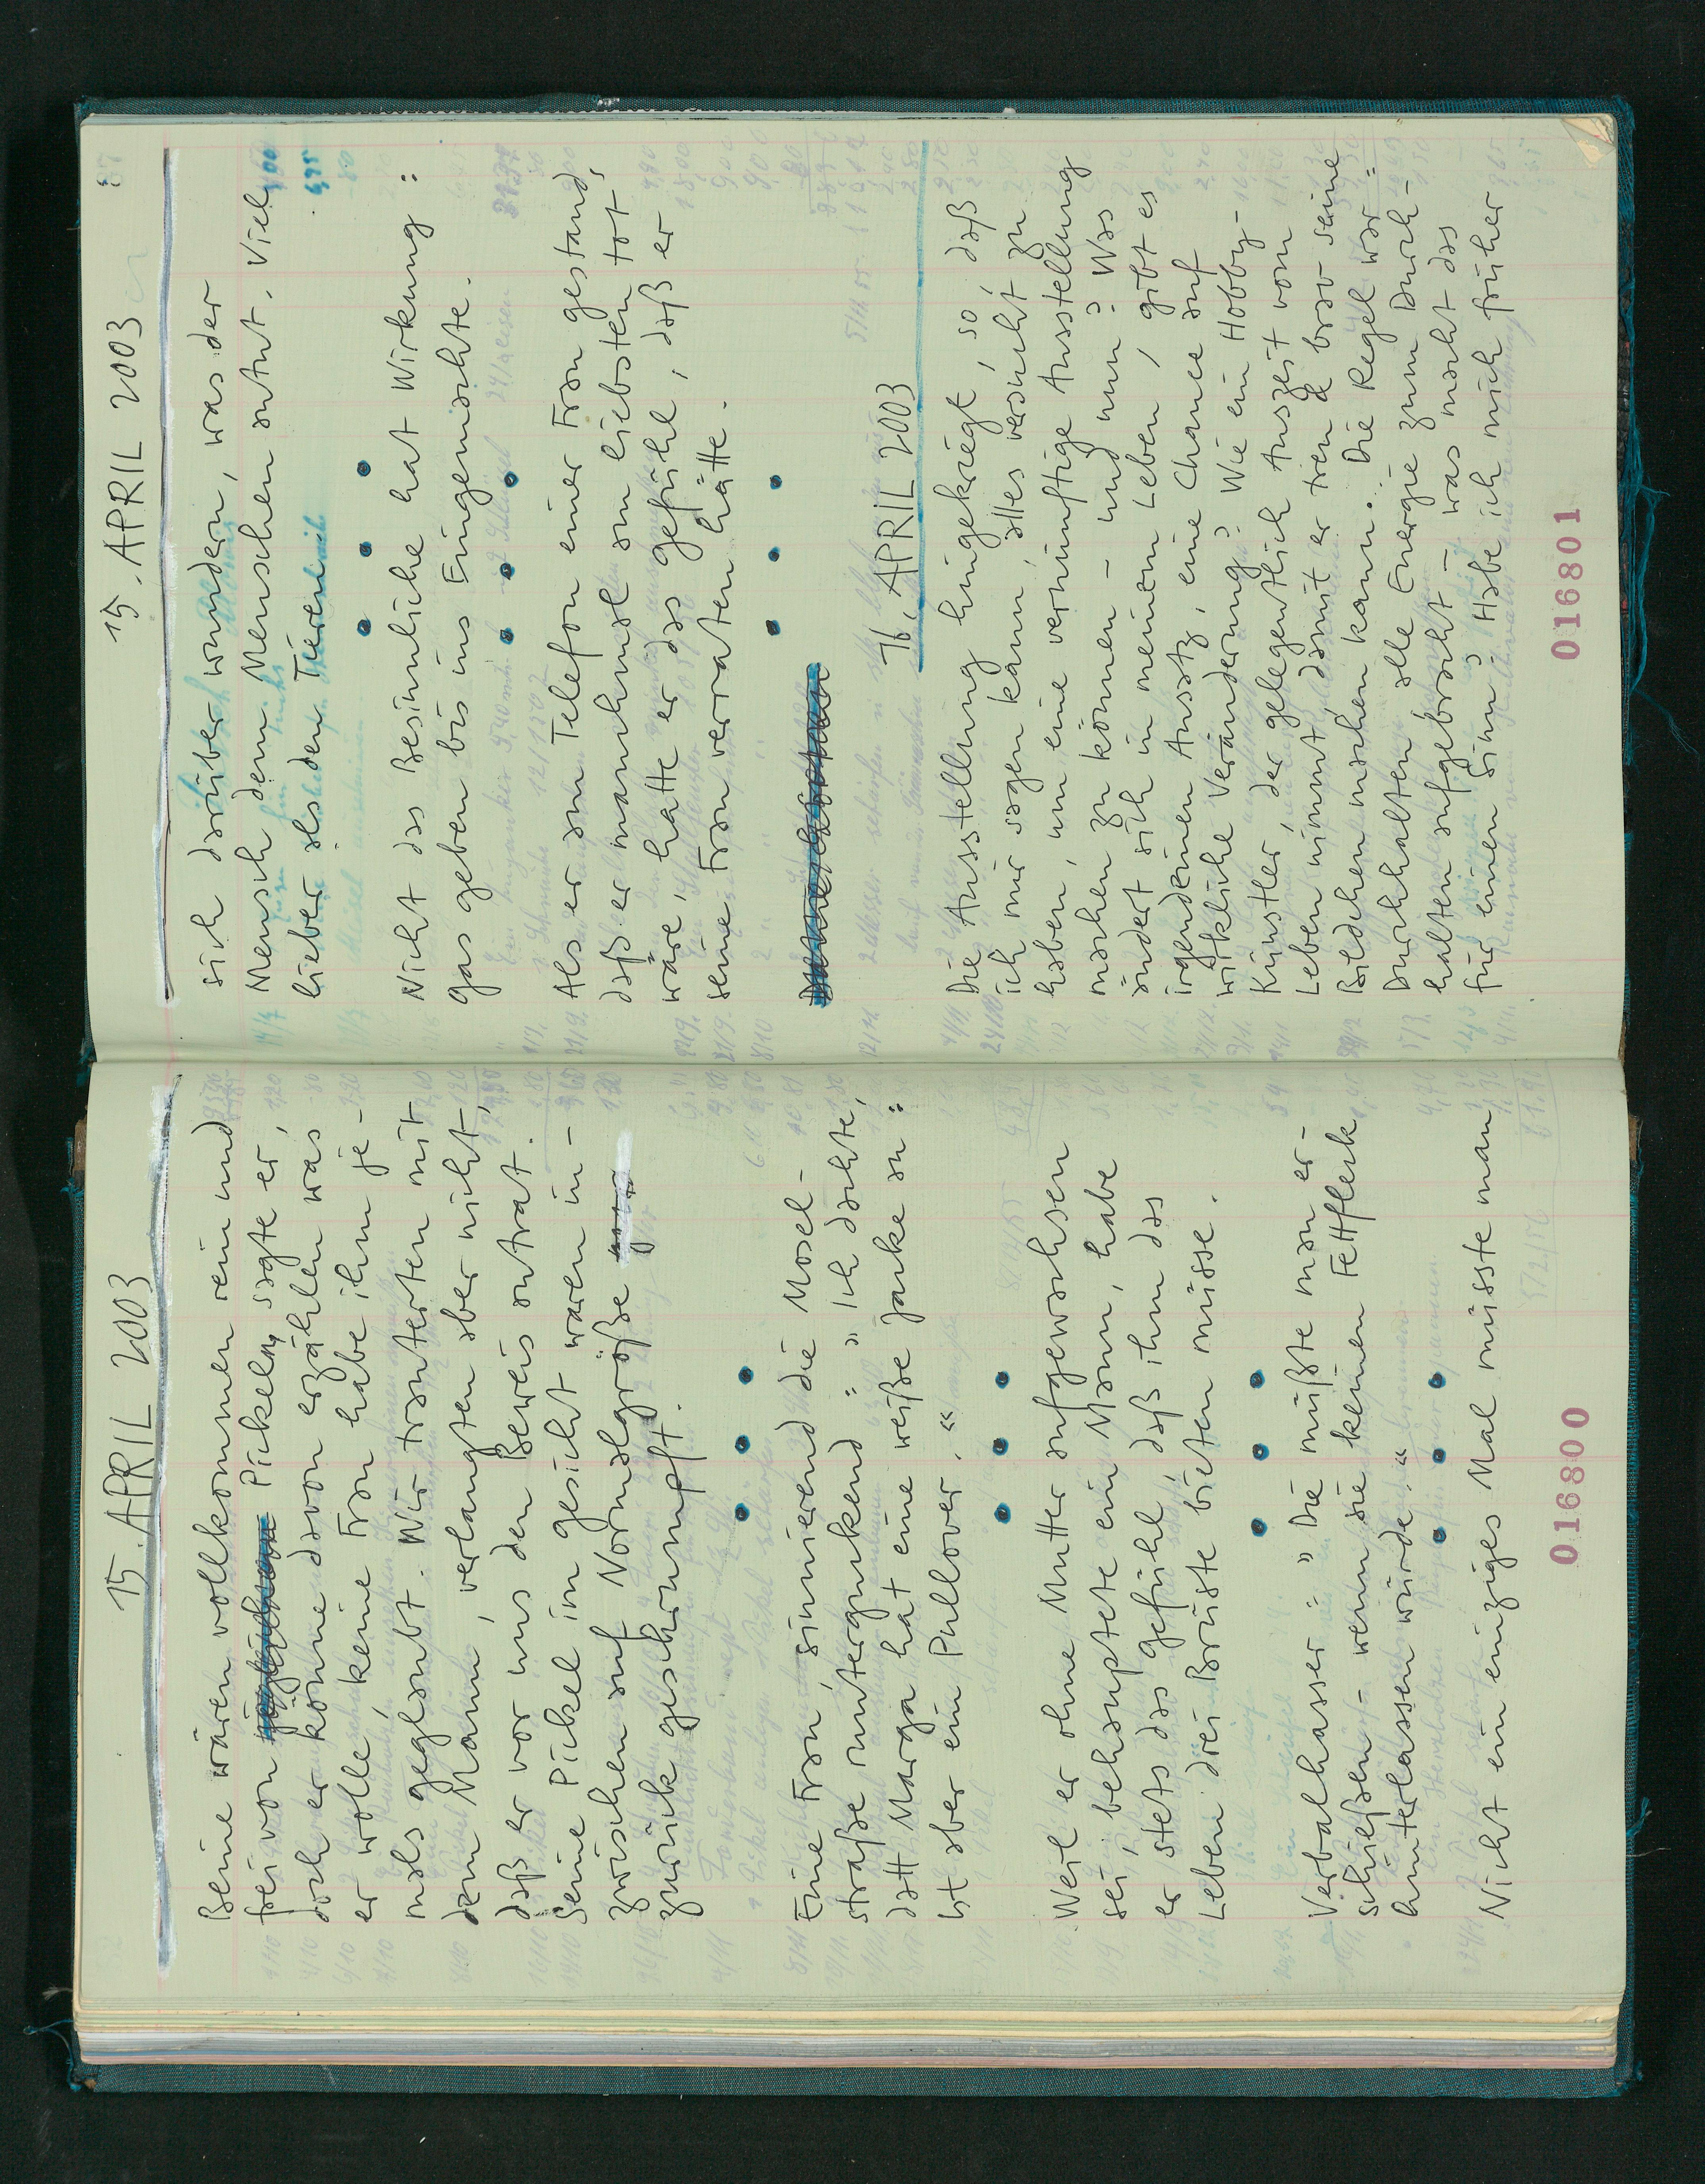 15. APRIL 2003
Beine wären vollkommen rein und
frei von Pickeln, sagte er,
doch er könne davon erzählen was
er wolle, keine Frau habe ihm je-
mals geglaubt. Wir trauerten mit
dem Mann, verlangten aber nicht,
daß er vor uns den Beweis antrat.
Seine Pickel im Gesicht waren in-
zwischen auf Normalgröße
zurück geschrumpft.
Eine Frau, sinnierend die Mosel-
straße runtergunkend: "Ich dachte,
datt Marga hat eine weiße Janke an:
Ist aber ein Pullover."
Weil er ohne Mutter aufgewachsen
sei, behauptete ein Mann, habe
er stets das Gefühl, daß ihm das
Leben drei Brüste bieten müsse.
Verbalhasser: "Die müßte man er-
schießen - wenn sie keinen Fettfleck
hinterlassen würde."
Nicht ein einziges Mal müsste man
016800
15. APRIL 2003
sich darüber wundern, was der
Mensch dem Menschen antut. Viel
lieber als den Tieren.
Nicht das Besinnliche hat Wirkung:
Gas geben bis ins Eingemachte.
Als er am Telefon einer Frau gestand,
daß er manchmal am liebsten tot
wäre, hatte er das Gefühl, daß er
seine Frau verraten hätte.
16. APRIL 2003
Die Ausstellung hingekriegt, so, daß
ich mir sagen kann, alles versucht zu
haben, um eine vernünftige Ausstellung
machen zu können - und nun? Was
ändert sich in meinem Leben, gibt es
irgendeinen Ansatz, eine Chance auf
wirkliche Veränderung? Wie ein Hobby-
Künstler, der gelegentlich Auszeit vom
Leben nimmt, damit er treu & brav seine
Bildchen machen kann. Die Regel war:
Durchhalten, alle Energie zum Durch-
halten aufgebracht - was macht das
für einen Sinn? Habe ich mich früher
016801